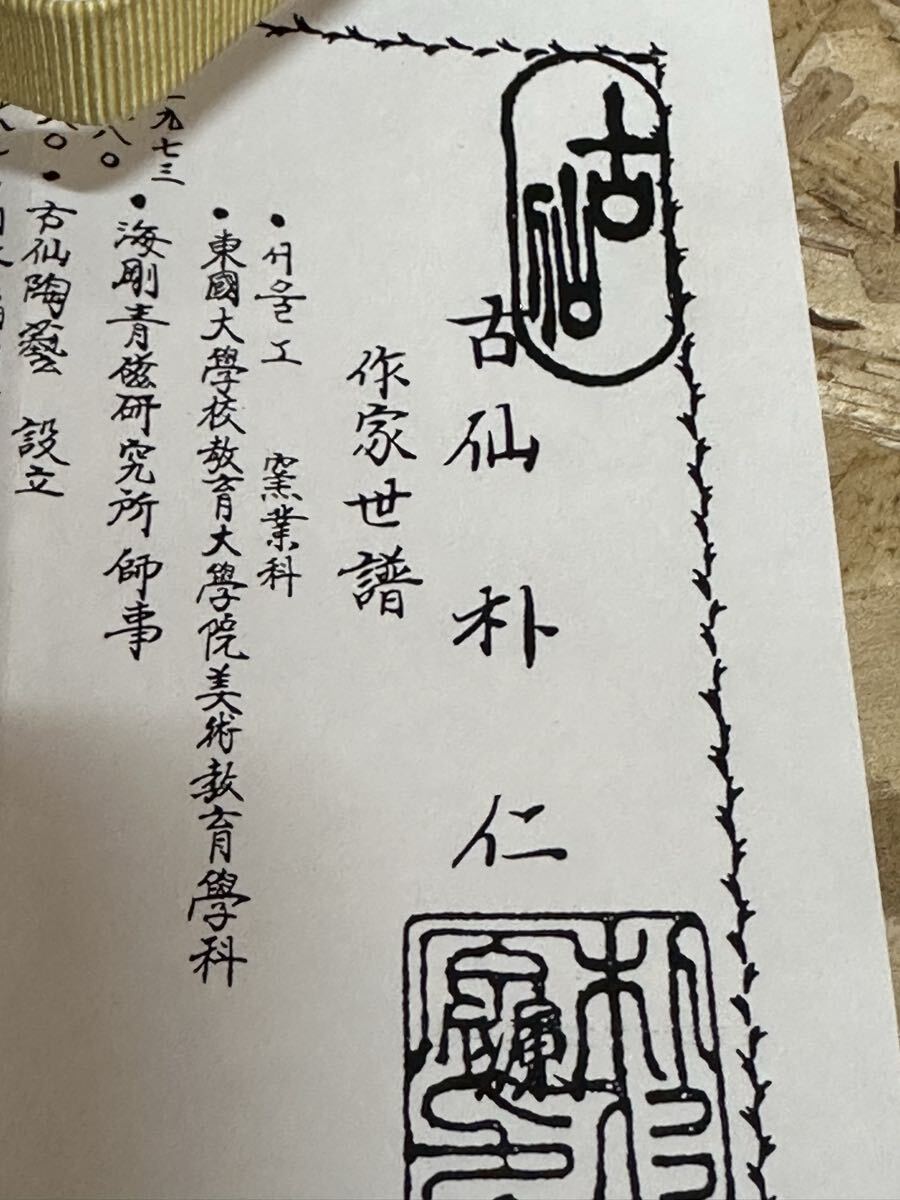 古仙
古仙 朴 仁
作家世譜
• 서울工 窯業科
• 東國大學校教育大學院美術教育學科
• 海剛青磁研究所師事
一九七三
八〇
• 方仙陶藝 設立